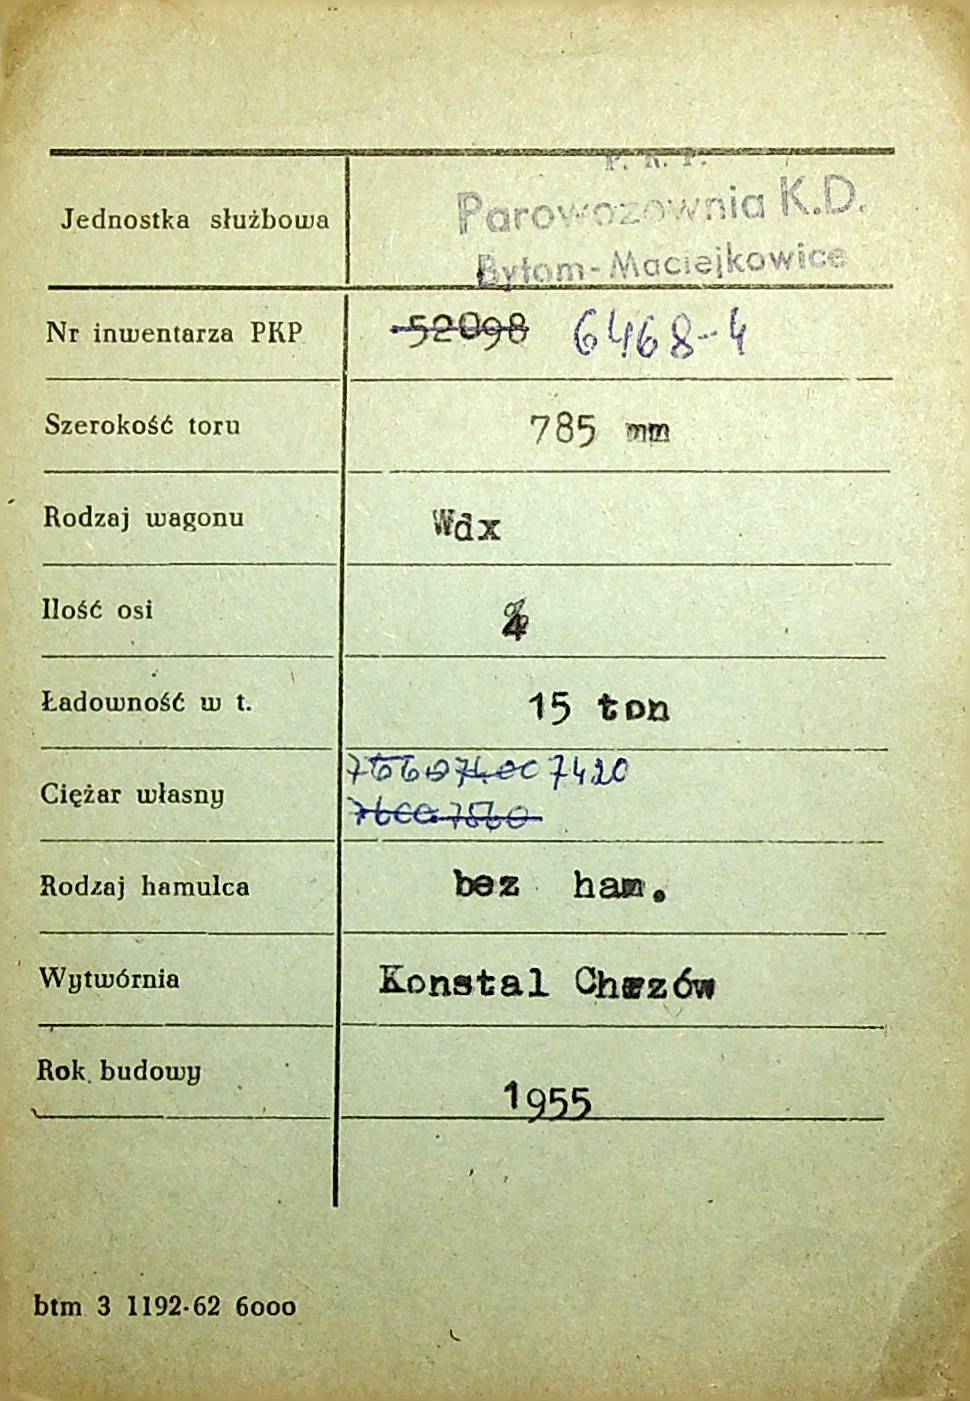 P. K. P.
Parowozownia K.D.
Jednostka służbowa
Bytom-Maciejkowice
Nr inwentarza PKP 52098 6468-4
Szerokość toru 785 mm
Rodzaj wagonu Wdx
Ilość osi 4
Ładowność w t. 15 ton
7400 7420
Ciężar własny
7600 7560
Rodzaj hamulca bez ham.
Wytwórnia Konstal Chrzów
Rok budowy 1955
btm 3 1192-62 6000